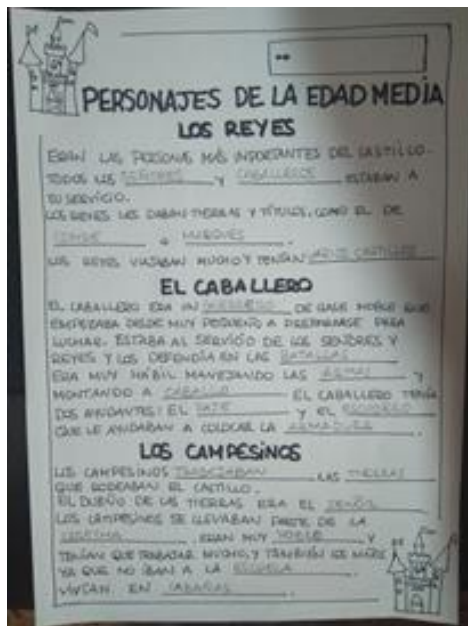 PERSONAJES DE LA EDAD MEDIA
LOS REYES
ERAN LAS PERSONAS MÁS IMPORTANTES DEL CASTILLO.
TODOS LOS SEÑORES Y CABALLEROS ESTABAN A
SU SERVICIO.
LOS REYES LES DABAN TIERRAS Y TÍTULOS, COMO EL DE
CONDE O MARQUÉS.
LOS REYES VIAJABAN MUCHO Y TENÍAN VARIOS CASTILLOS
EL CABALLERO
EL CABALLERO ERA UN GUERRERO DE CLASE NOBLE QUE
EMPEZABA DESDE MUY PEQUEÑO A PREPARARSE PARA
LUCHAR. ESTABA AL SERVICIO DE LOS SEÑORES Y
REYES Y LOS DEFENDÍA EN LAS BATALLAS
ERA MUY HÁBIL MANEJANDO LAS ARMAS Y
MONTANDO A CABALLO. EL CABALLERO TENÍA
DOS AYUDANTES: EL PAJE Y EL ESCUDERO
QUE LE AYUDABAN A COLOCAR LA ARMADURA.
LOS CAMPESINOS
LOS CAMPESINOS TRABAJABAN LAS TIERRAS
QUE RODEABAN EL CASTILLO.
EL DUEÑO DE LAS TIERRAS ERA EL SEÑOR
LOS CAMPESINOS SE LLEVABAN PARTE DE LA
COSECHA. ERAN MUY POBRES Y
TENÍAN QUE TRABAJAR MUCHO, Y TAMBIÉN LOS NIÑOS
YA QUE NO IBAN A LA ESCUELA.
VIVÍAN EN CABAÑAS.